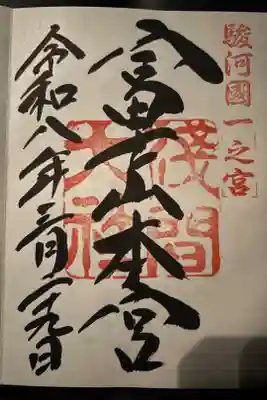 駿河國一之宮
富士山本宮
浅間大社
令和八年三月二十九日